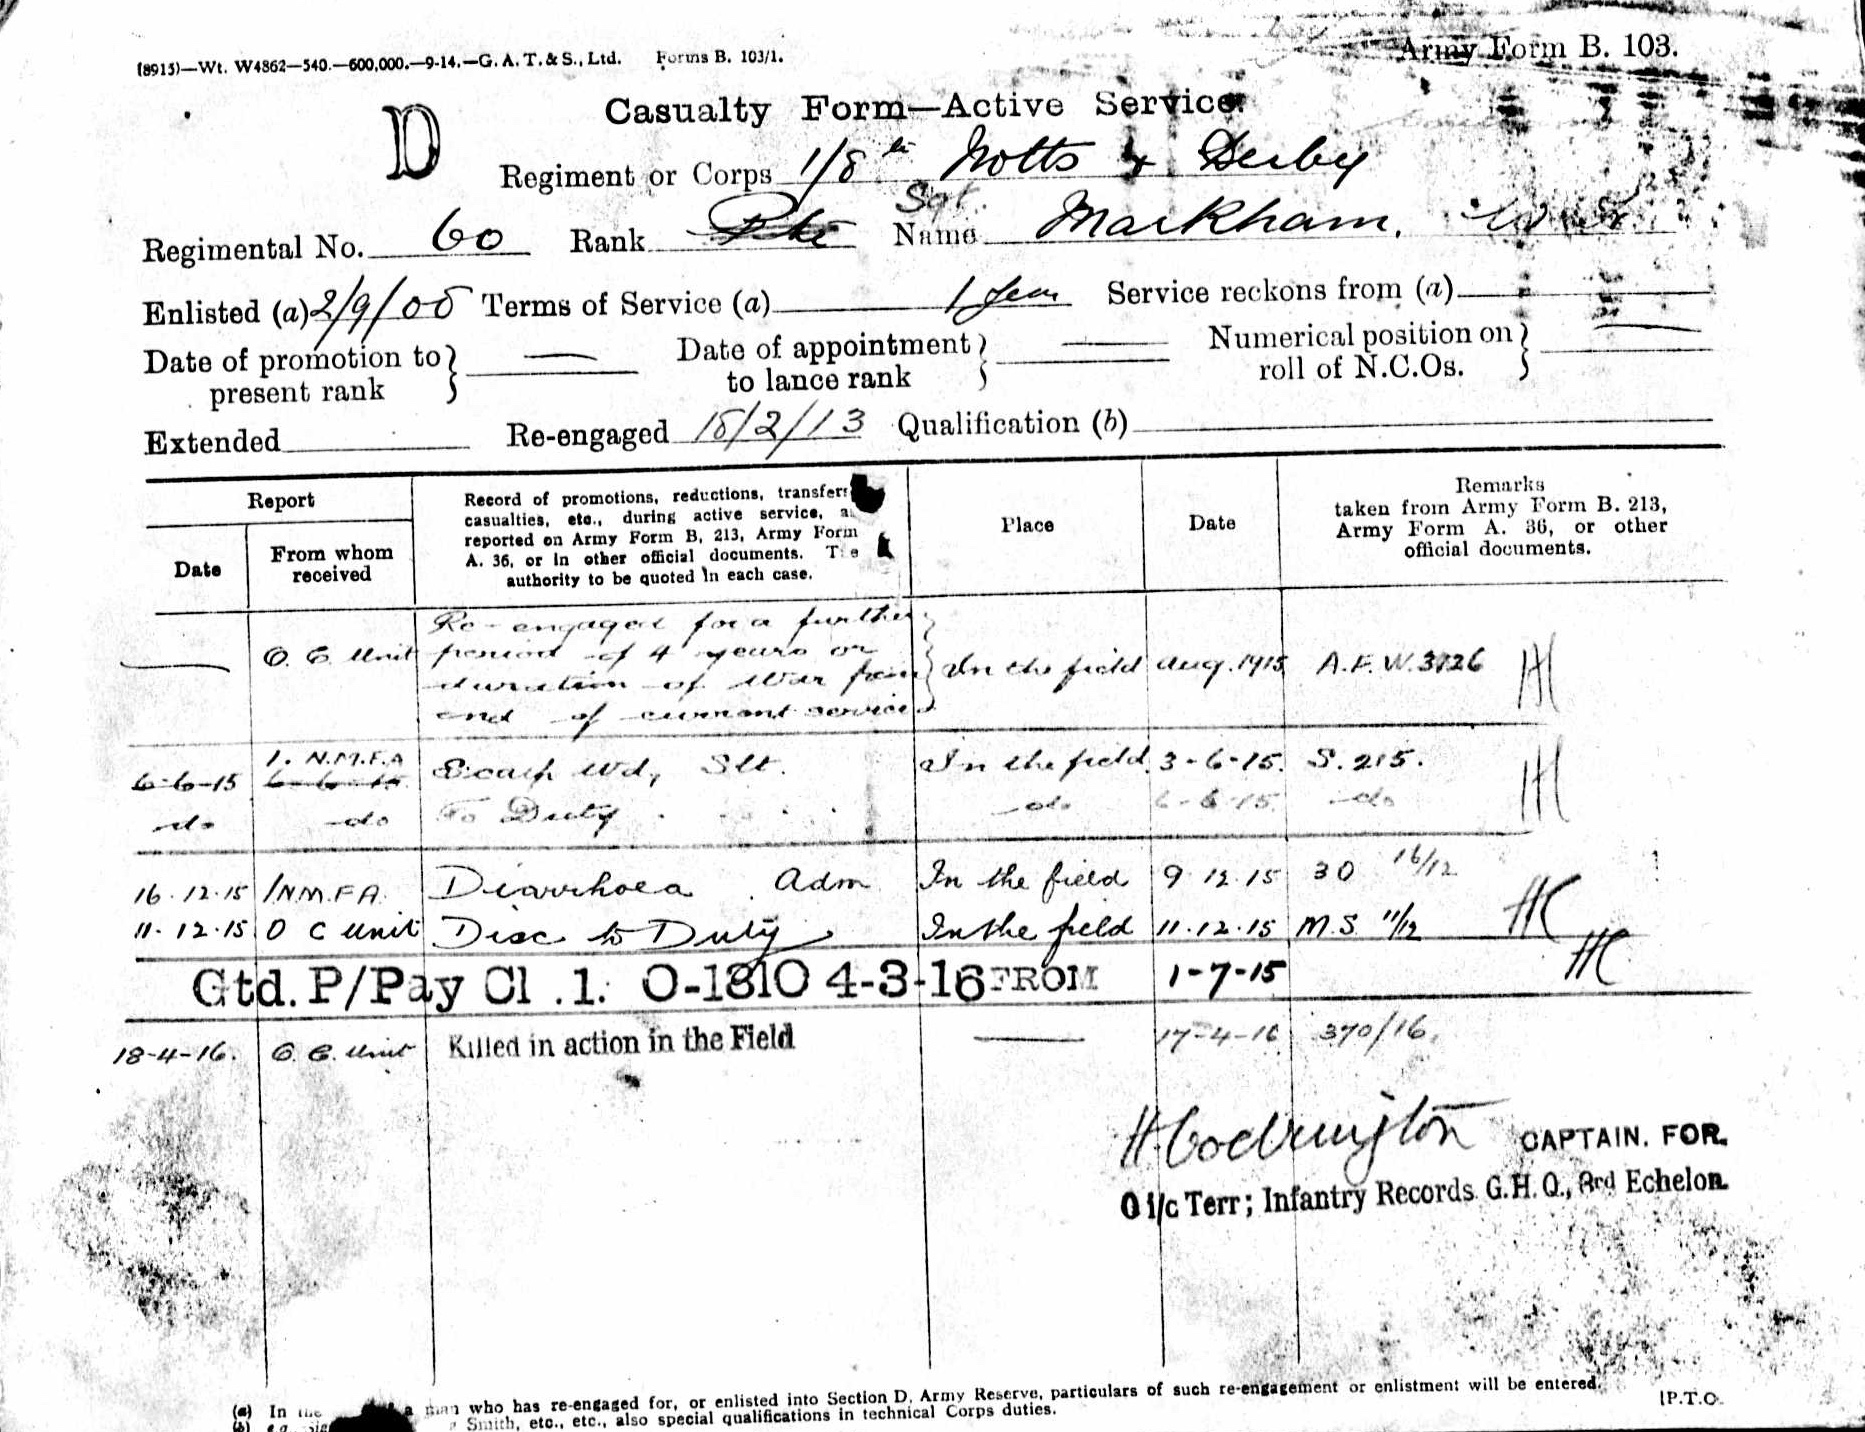 (8915)—Wt. W4862—540.—600,000.—9-14.—G. A. T. & S., Ltd. Forms B. 103/1.
Army Form B. 103.
D
Casualty Form—Active Service.
Regiment or Corps 1/8th Notts & Derby
Sgt.
Regimental No. 60 Rank Pte Name Markham,
Enlisted (a) 2/9/08 Terms of Service (a) 1 year Service reckons from (a)
Date of promotion to present rank — Date of appointment to lance rank — Numerical position on roll of N.C.Os. —
Extended Re-engaged 18/2/13 Qualification (b)
Report
Date
From whom received
Record of promotions, reductions, transfers casualties, etc., during active service, as reported on Army Form B, 213, Army Form A. 36, or in other official documents. The authority to be quoted in each case.
Place
Date
Remarks taken from Army Form B. 213, Army Form A. 36, or other official documents.
— O. C. Unit Re-engaged for a further period of 4 years or duration of War from end of current service In the field Aug. 1915 A.F.W. 3126 H
6-6-15 1. N.M.F.A 6-6-15 Wd, Slt. In the field. 3-6-15. S. 215. H
do do To Duty do 6-6-15. do
16.12.15 1/N.M.F.A. Diarrhoea Adm In the field 9.12.15 30 16/12
11.12.15 O C Unit Disc to Duty In the field 11.12.15 M.S. 11/12 HC
Gtd. P/Pay Cl .1. O-1810 4-3-16 FROM 1-7-15 HC
18-4-16. O. C. Unit Killed in action in the Field — 17-4-16 370/16.
H Codrington CAPTAIN. FOR.
O i/c Terr; Infantry Records G.H.Q., 3rd Echelon.
(a) In the a man who has re-engaged for, or enlisted into Section D, Army Reserve, particulars of such re-engagement or enlistment will be entered.
(b) e.g. Smith, etc., etc., also special qualifications in technical Corps duties.
[P.T.O.